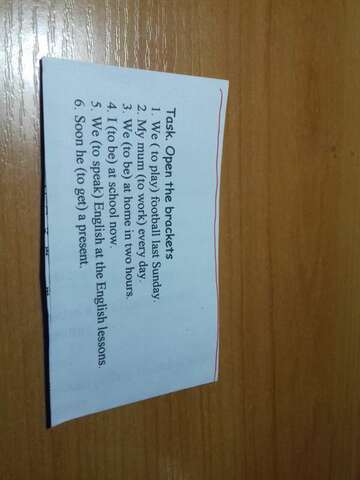 Task. Open the brackets
1. We ( to play) football last Sunday.
2. My mum (to work) every day.
3. We (to be) at home in two hours.
4. I (to be) at school now.
5. We (to speak) English at the English lessons.
6. Soon he (to get) a present.